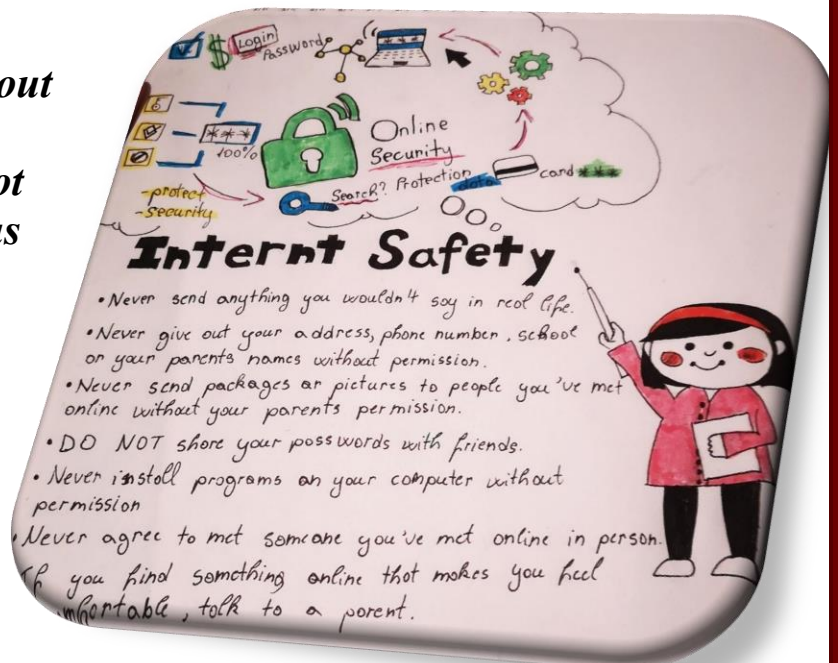 out
ot
as
Login
Password
***
100%
Online
Security
- protect
- security
Search? Protection data card ***
Internt Safety
• Never send anything you wouldn't say in real life.
• Never give out your address, phone number, school
or your parents names without permission.
• Never send packages or pictures to people you've met
online without your parents permission.
• DO NOT share your passwords with friends.
• Never install programs on your computer without
permission
• Never agree to met someone you've met online in person.
If you find something online that makes you feel
mfortable, talk to a parent.